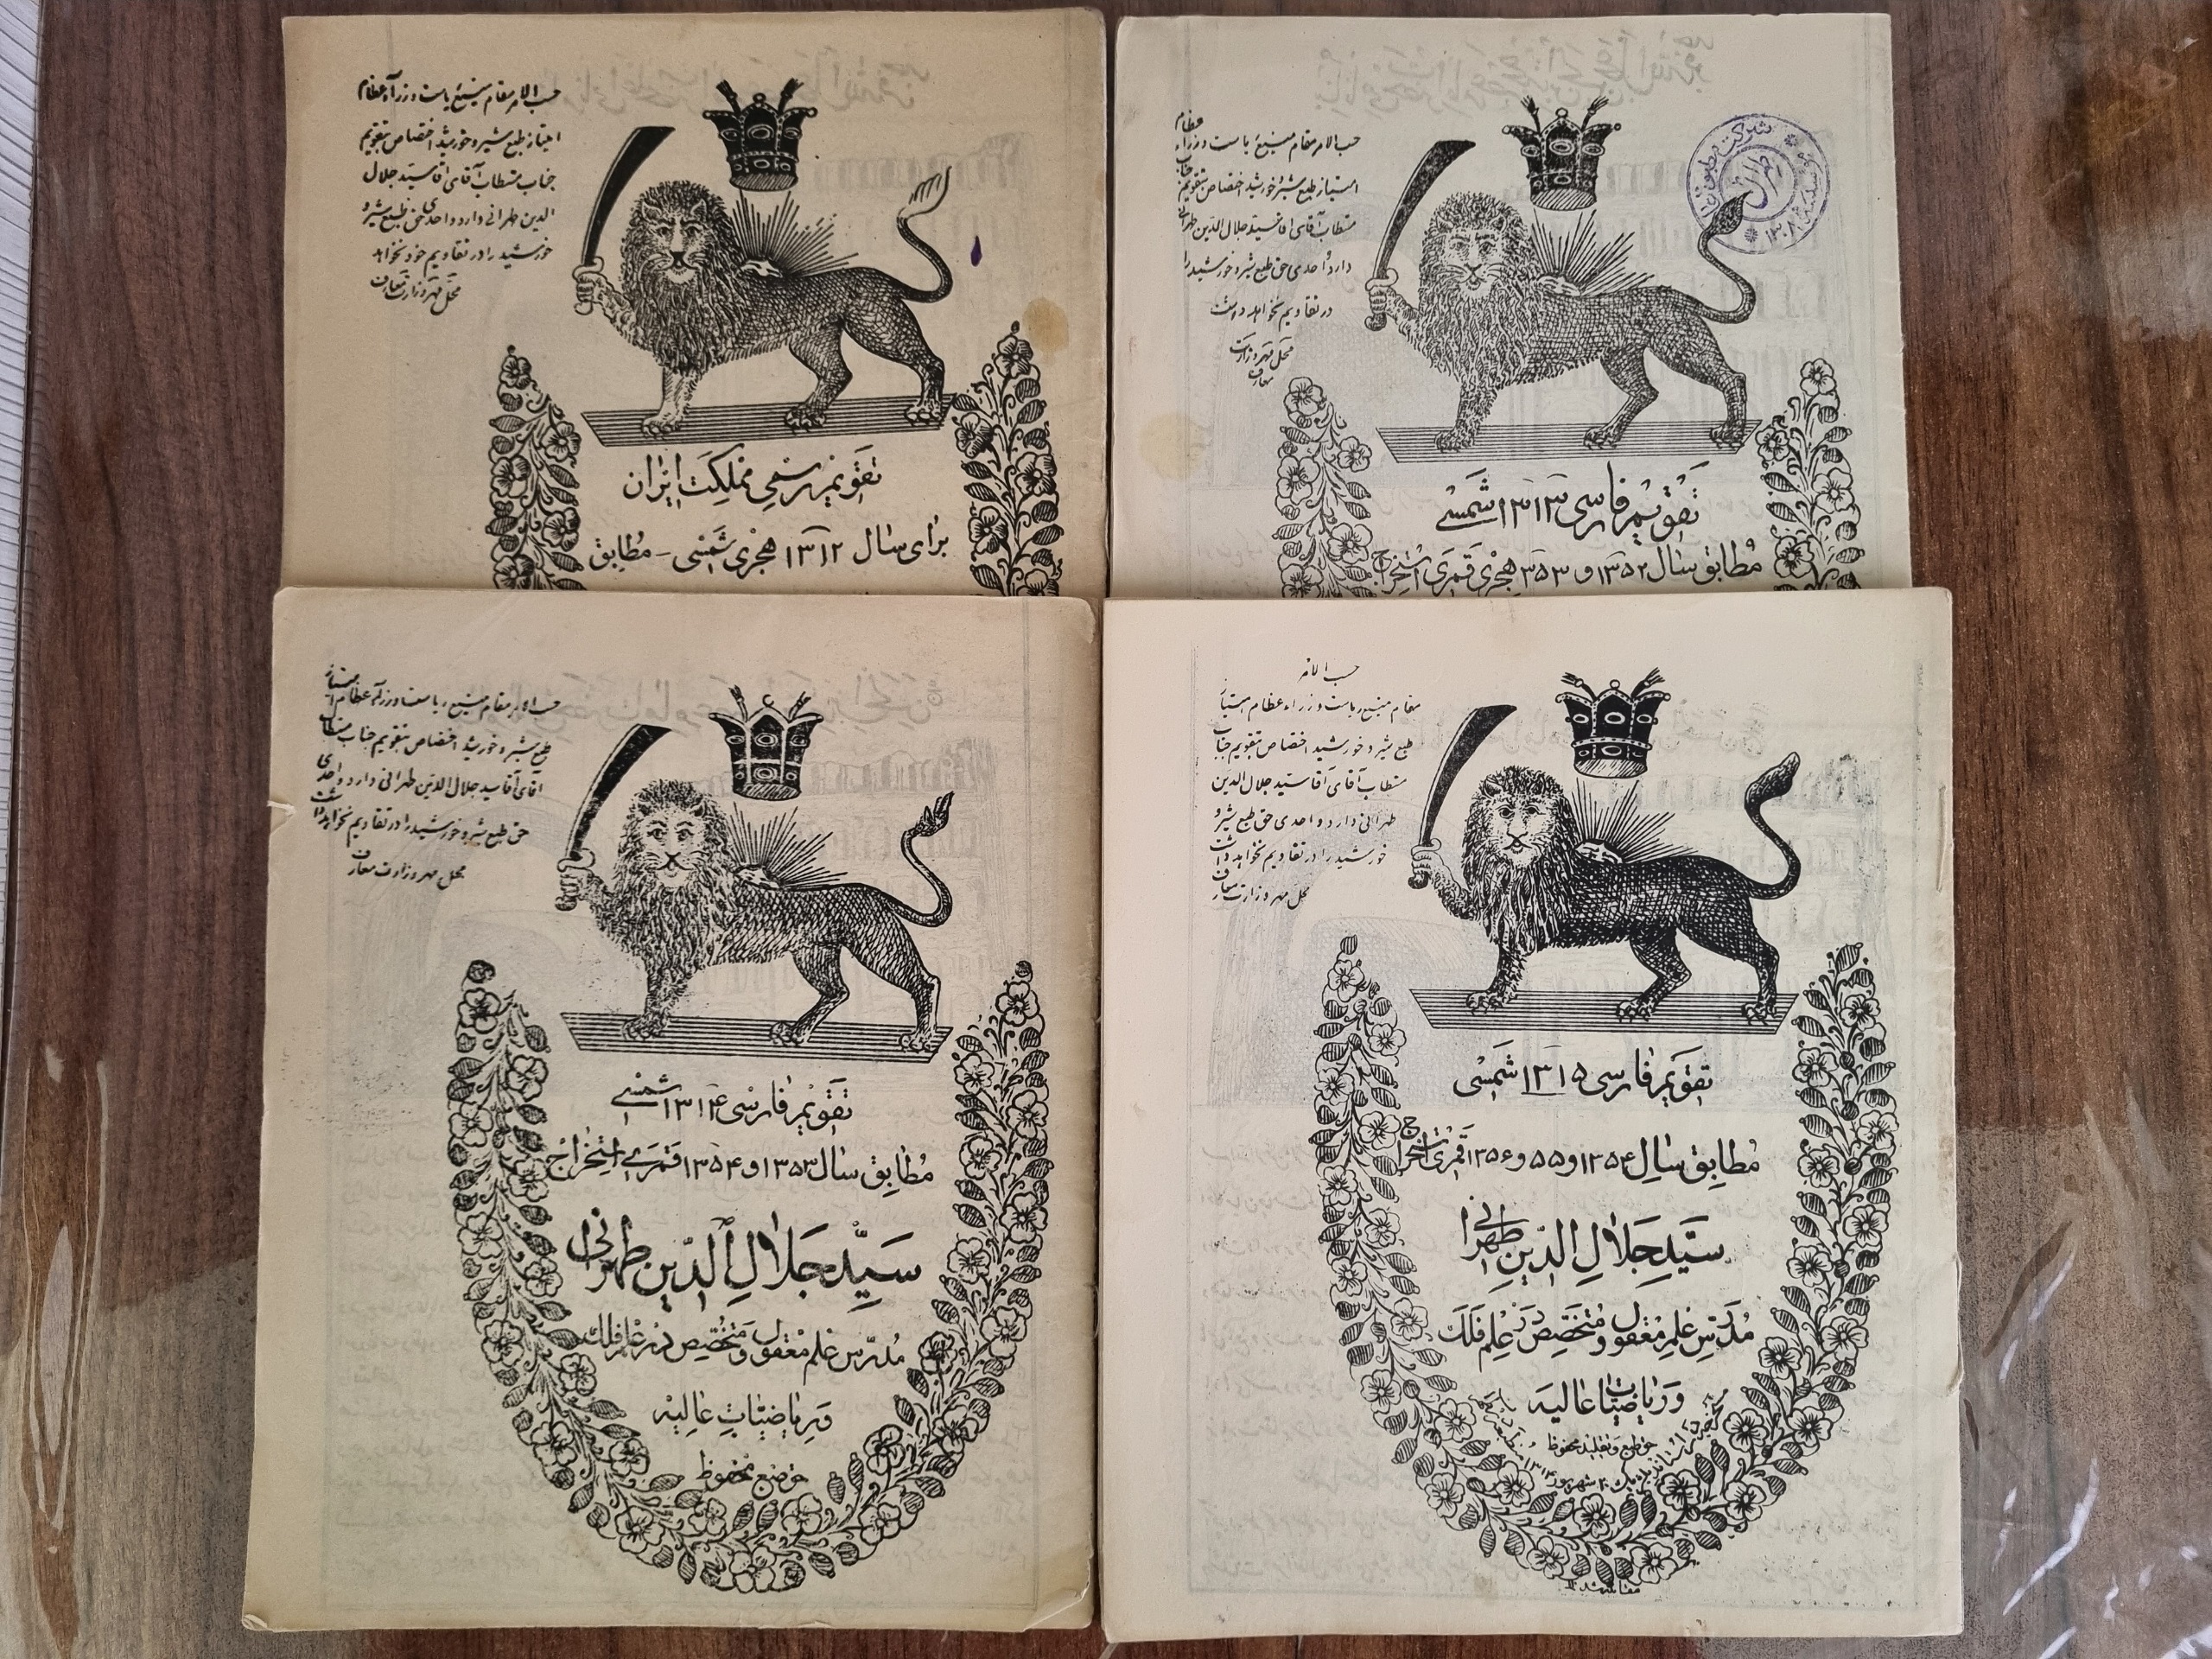 حسب الامر مقام منیع ریاست وزراء عظام
امتیاز طبع شیر و خورشید اختصاص بتقویم
جناب مستطاب آقای آقا سید جلال
الدین طهرانی دارد و احدی حق طبع شیر و
خورشید را در تقاویم خود نخواهد
محل مهر وزارت معارف
تقویم رسمی مملکت ایران
برای سال ۱۳۱۲ هجری شمسی - مطابق
حسب الامر مقام منیع ریاست وزراء عظام
امتیاز طبع شیر و خورشید اختصاص بتقویم جناب
مستطاب آقای آقا سید جلال الدین طهرانی
دارد و احدی حق طبع شیر و خورشید را
در تقاویم نخواهد داشت
محل مهر وزارت
معارف
شرکت مطبوعات
تقویم فارسی ۱۳۱۳ شمسی
مطابق سال ۱۳۵۲ و ۱۳۵۳ هجری قمری استخراج
حسب الامر مقام منیع ریاست وزراء عظام امتیاز
طبع شیر و خورشید اختصاص بتقویم جناب مستطاب
آقای آقا سید جلال الدین طهرانی دارد و احدی
حق طبع شیر و خورشید را در تقاویم نخواهد داشت
محل مهر وزارت معارف
تقویم فارسی ۱۳۱۴ شمسی
مطابق سال ۱۳۵۳ و ۱۳۵۴ قمری استخراج
سید جلال الدین طهرانی
مدرس علم معقول و متخصص در علم فلک
و ریاضیات عالیه
حق طبع محفوظ
حسب الامر
مقام منیع ریاست وزراء عظام امتیاز
طبع شیر و خورشید اختصاص بتقویم جناب
مستطاب آقای آقا سید جلال الدین
طهرانی دارد و احدی حق طبع شیر و
خورشید را در تقاویم نخواهد داشت
محل مهر وزارت معارف
تقویم فارسی ۱۳۱۵ شمسی
مطابق سال ۱۳۵۴ و ۵۵ و ۱۳۵۶ قمری استخراج
سید جلال الدین طهرانی
مدرس علم معقول و متخصص در علم فلک
و ریاضیات عالیه
حق طبع و تقلید محفوظ